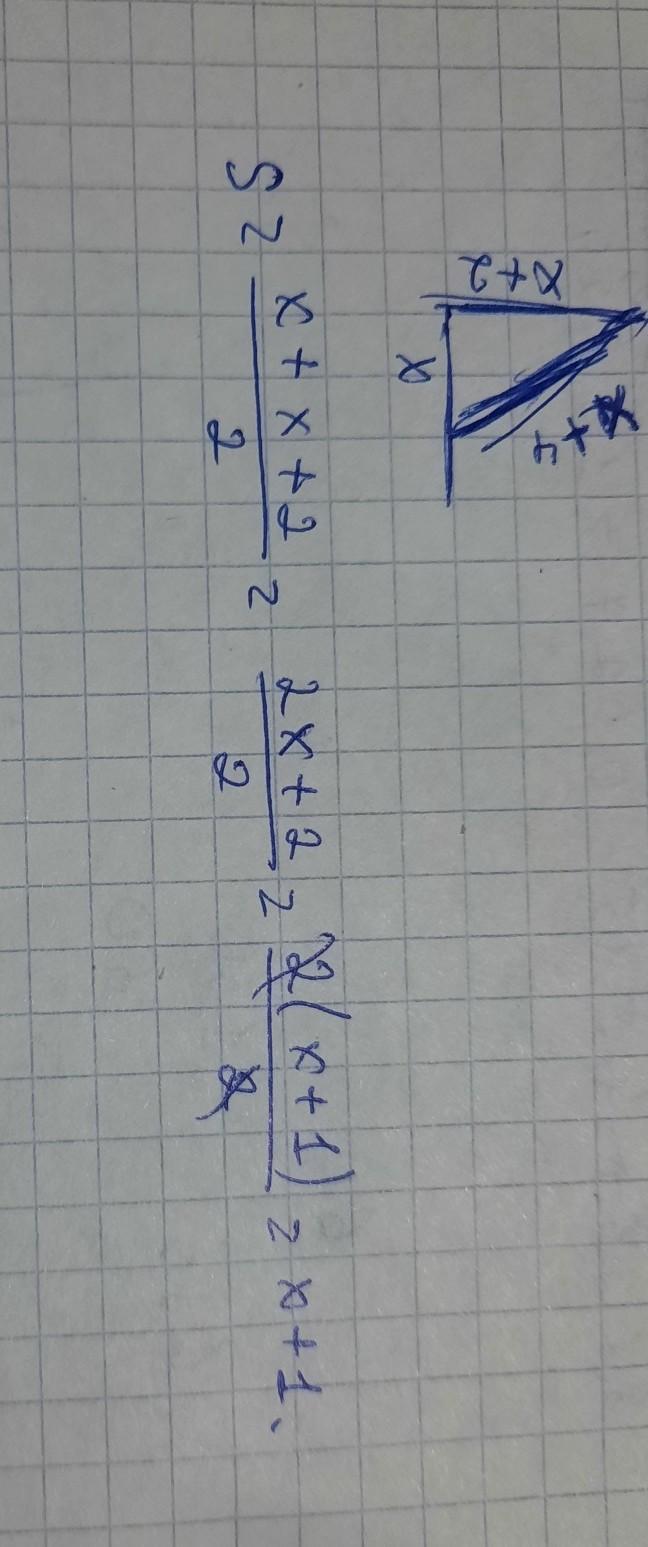 x+2
x
x+4
S = \frac{x+x+2}{2} = \frac{2x+2}{2} = \frac{2(x+1)}{2} = x+1.